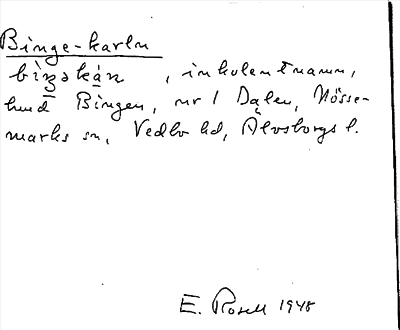 Binge-karln
bìŋəkán, inkolentnamn,
hmd Bingen, nr 1 Dalen, Nösse-
marks sn, Vedbo hd, Älvsborgs l.
E. Rosell 1948